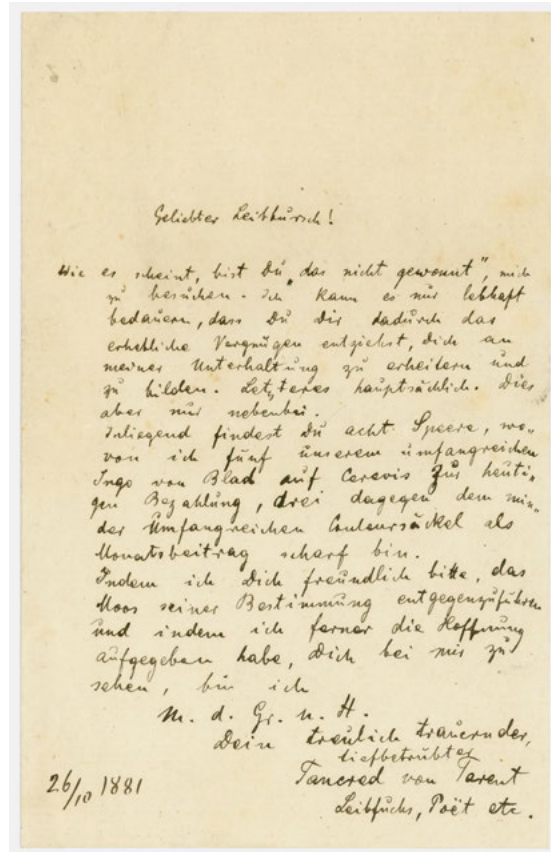 Geliebter Leibbursch!
Wie es scheint, bist Du „das nicht gewonnt", mich
zu besuchen. Ich kann es nur lebhaft
bedauern, dass Du Dir dadurch das
erhebliche Vergnügen entziehst, Dich an
meiner Unterhaltung zu erheitern und
zu bilden. Letzteres hauptsächlich. Dies
aber nur nebenbei.
Inliegend findest Du acht Speere, wo-
von ich fünf unserem umfangreichen
Ingo von Blad auf Cerevis zur heuti-
gen Bezahlung, drei dagegen dem min-
der Umfangreichen Couleursäckel als
Monatsbeitrag scharf bin.
Indem ich Dich freundlich bitte, das
Moos seiner Bestimmung entgegenzuführen
und indem ich ferner die Hoffnung
aufgegeben habe, Dich bei mir zu
sehen, bin ich
M. d. Gr. u. H.
Dein treulich trauernder,
tiefbetrübter
Tancred von Tarent
Leibfuchs, Poët etc.
26/10 1881